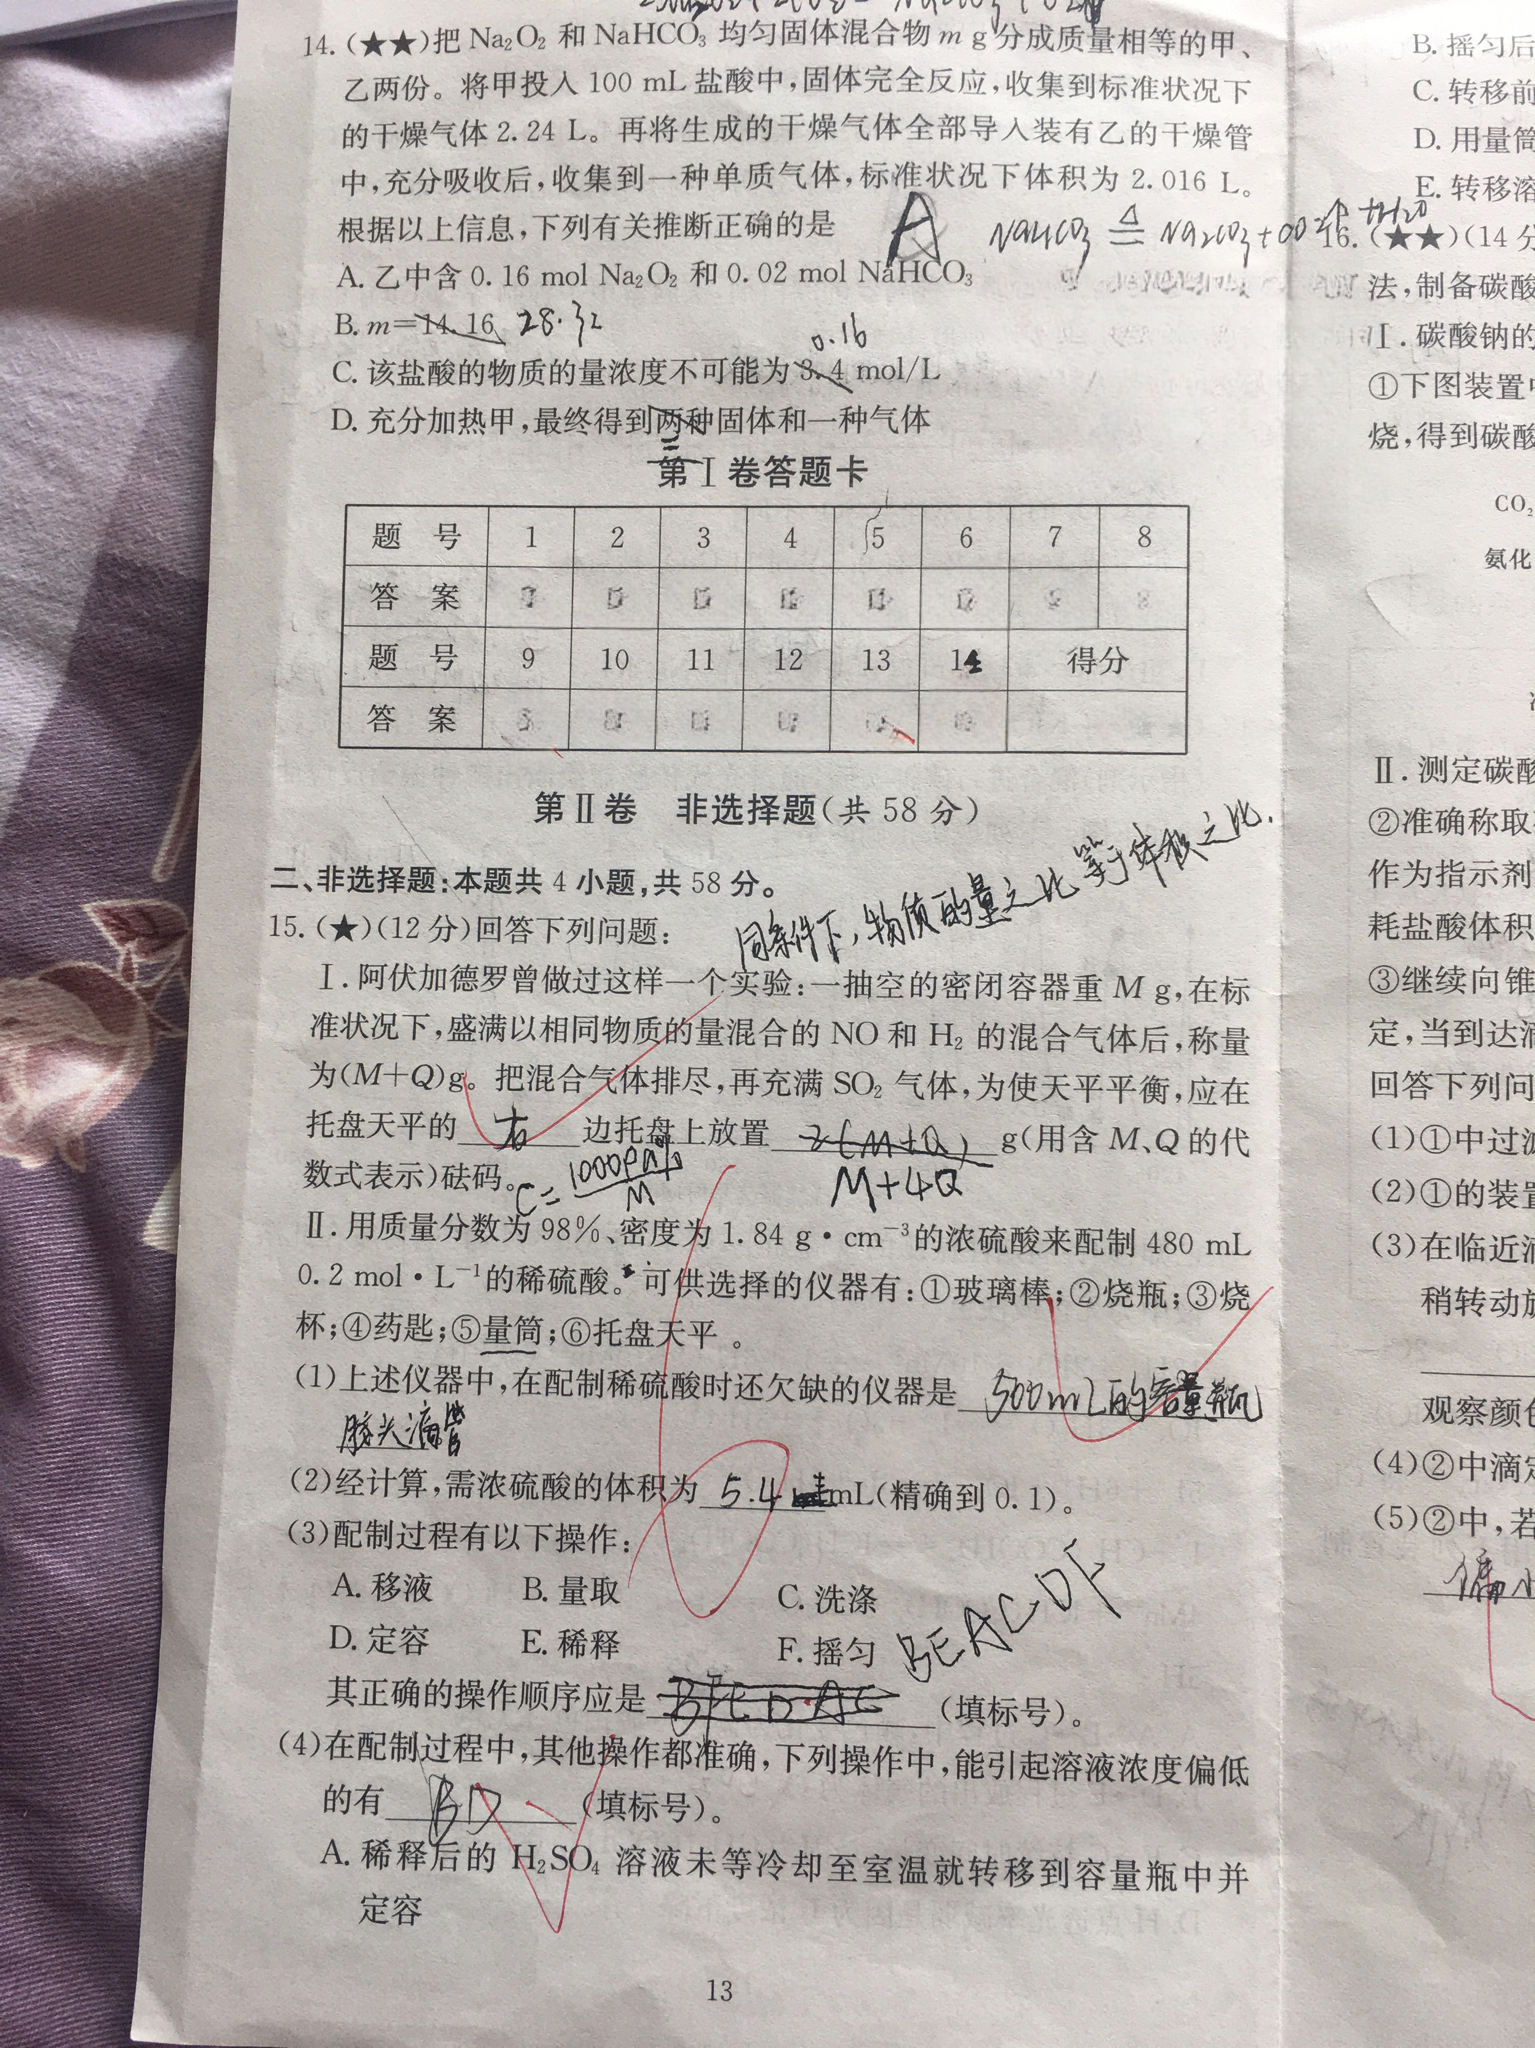 14.(★★)把 Na₂O₂ 和 NaHCO₃ 均匀固体混合物 m g 分成质量相等的甲、
乙两份。将甲投入 100 mL 盐酸中,固体完全反应,收集到标准状况下
的干燥气体 2.24 L。再将生成的干燥气体全部导入装有乙的干燥管
中,充分吸收后,收集到一种单质气体,标准状况下体积为 2.016 L。
根据以上信息,下列有关推断正确的是 A
NaHCO₃ ≜ Na₂CO₃+CO₂↑+H₂O
A. 乙中含 0.16 mol Na₂O₂ 和 0.02 mol NaHCO₃
B. m=14.16 28.32
0.16
C. 该盐酸的物质的量浓度不可能为 3.4 mol/L
D. 充分加热甲,最终得到两种固体和一种气体
第Ⅰ卷答题卡
题 号 1 2 3 4 5 6 7 8
答 案
题 号 9 10 11 12 13 14 得分
答 案
第Ⅱ卷 非选择题(共 58 分)
二、非选择题:本题共 4 小题,共 58 分。
同条件下,物质的量之比等于体积之比.
15.(★)(12 分)回答下列问题:
Ⅰ. 阿伏加德罗曾做过这样一个实验:一抽空的密闭容器重 M g,在标
准状况下,盛满以相同物质的量混合的 NO 和 H₂ 的混合气体后,称量
为(M+Q)g。把混合气体排尽,再充满 SO₂ 气体,为使天平平衡,应在
托盘天平的 右 边托盘上放置 2(M+Q) g(用含 M、Q 的代
数式表示)砝码。 C=1000ρa%/M M+4Q
Ⅱ. 用质量分数为 98%、密度为 1.84 g·cm⁻³的浓硫酸来配制 480 mL
0.2 mol·L⁻¹的稀硫酸。可供选择的仪器有:①玻璃棒;②烧瓶;③烧
杯;④药匙;⑤量筒;⑥托盘天平 。
(1)上述仪器中,在配制稀硫酸时还欠缺的仪器是 500mL的容量瓶
胶头滴管
(2)经计算,需浓硫酸的体积为 5.4 mL(精确到 0.1)。
(3)配制过程有以下操作:
A. 移液 B. 量取 C. 洗涤
D. 定容 E. 稀释 F. 摇匀 BEACDF
其正确的操作顺序应是 (填标号)。
(4)在配制过程中,其他操作都准确,下列操作中,能引起溶液浓度偏低
的有 BD (填标号)。
A. 稀释后的 H₂SO₄ 溶液未等冷却至室温就转移到容量瓶中并
定容
13
B. 摇匀后
C. 转移前
D. 用量筒
E. 转移溶
16.(★★)(14 分
法,制备碳酸
Ⅰ. 碳酸钠的
①下图装置中
烧,得到碳酸
CO₂
氨化
Ⅱ. 测定碳酸
②准确称取
作为指示剂
耗盐酸体积
③继续向锥
定,当到达滴
回答下列问
(1)①中过滤
(2)①的装置
(3)在临近滴
稍转动放
观察颜色
(4)②中滴定
(5)②中,若
偏小